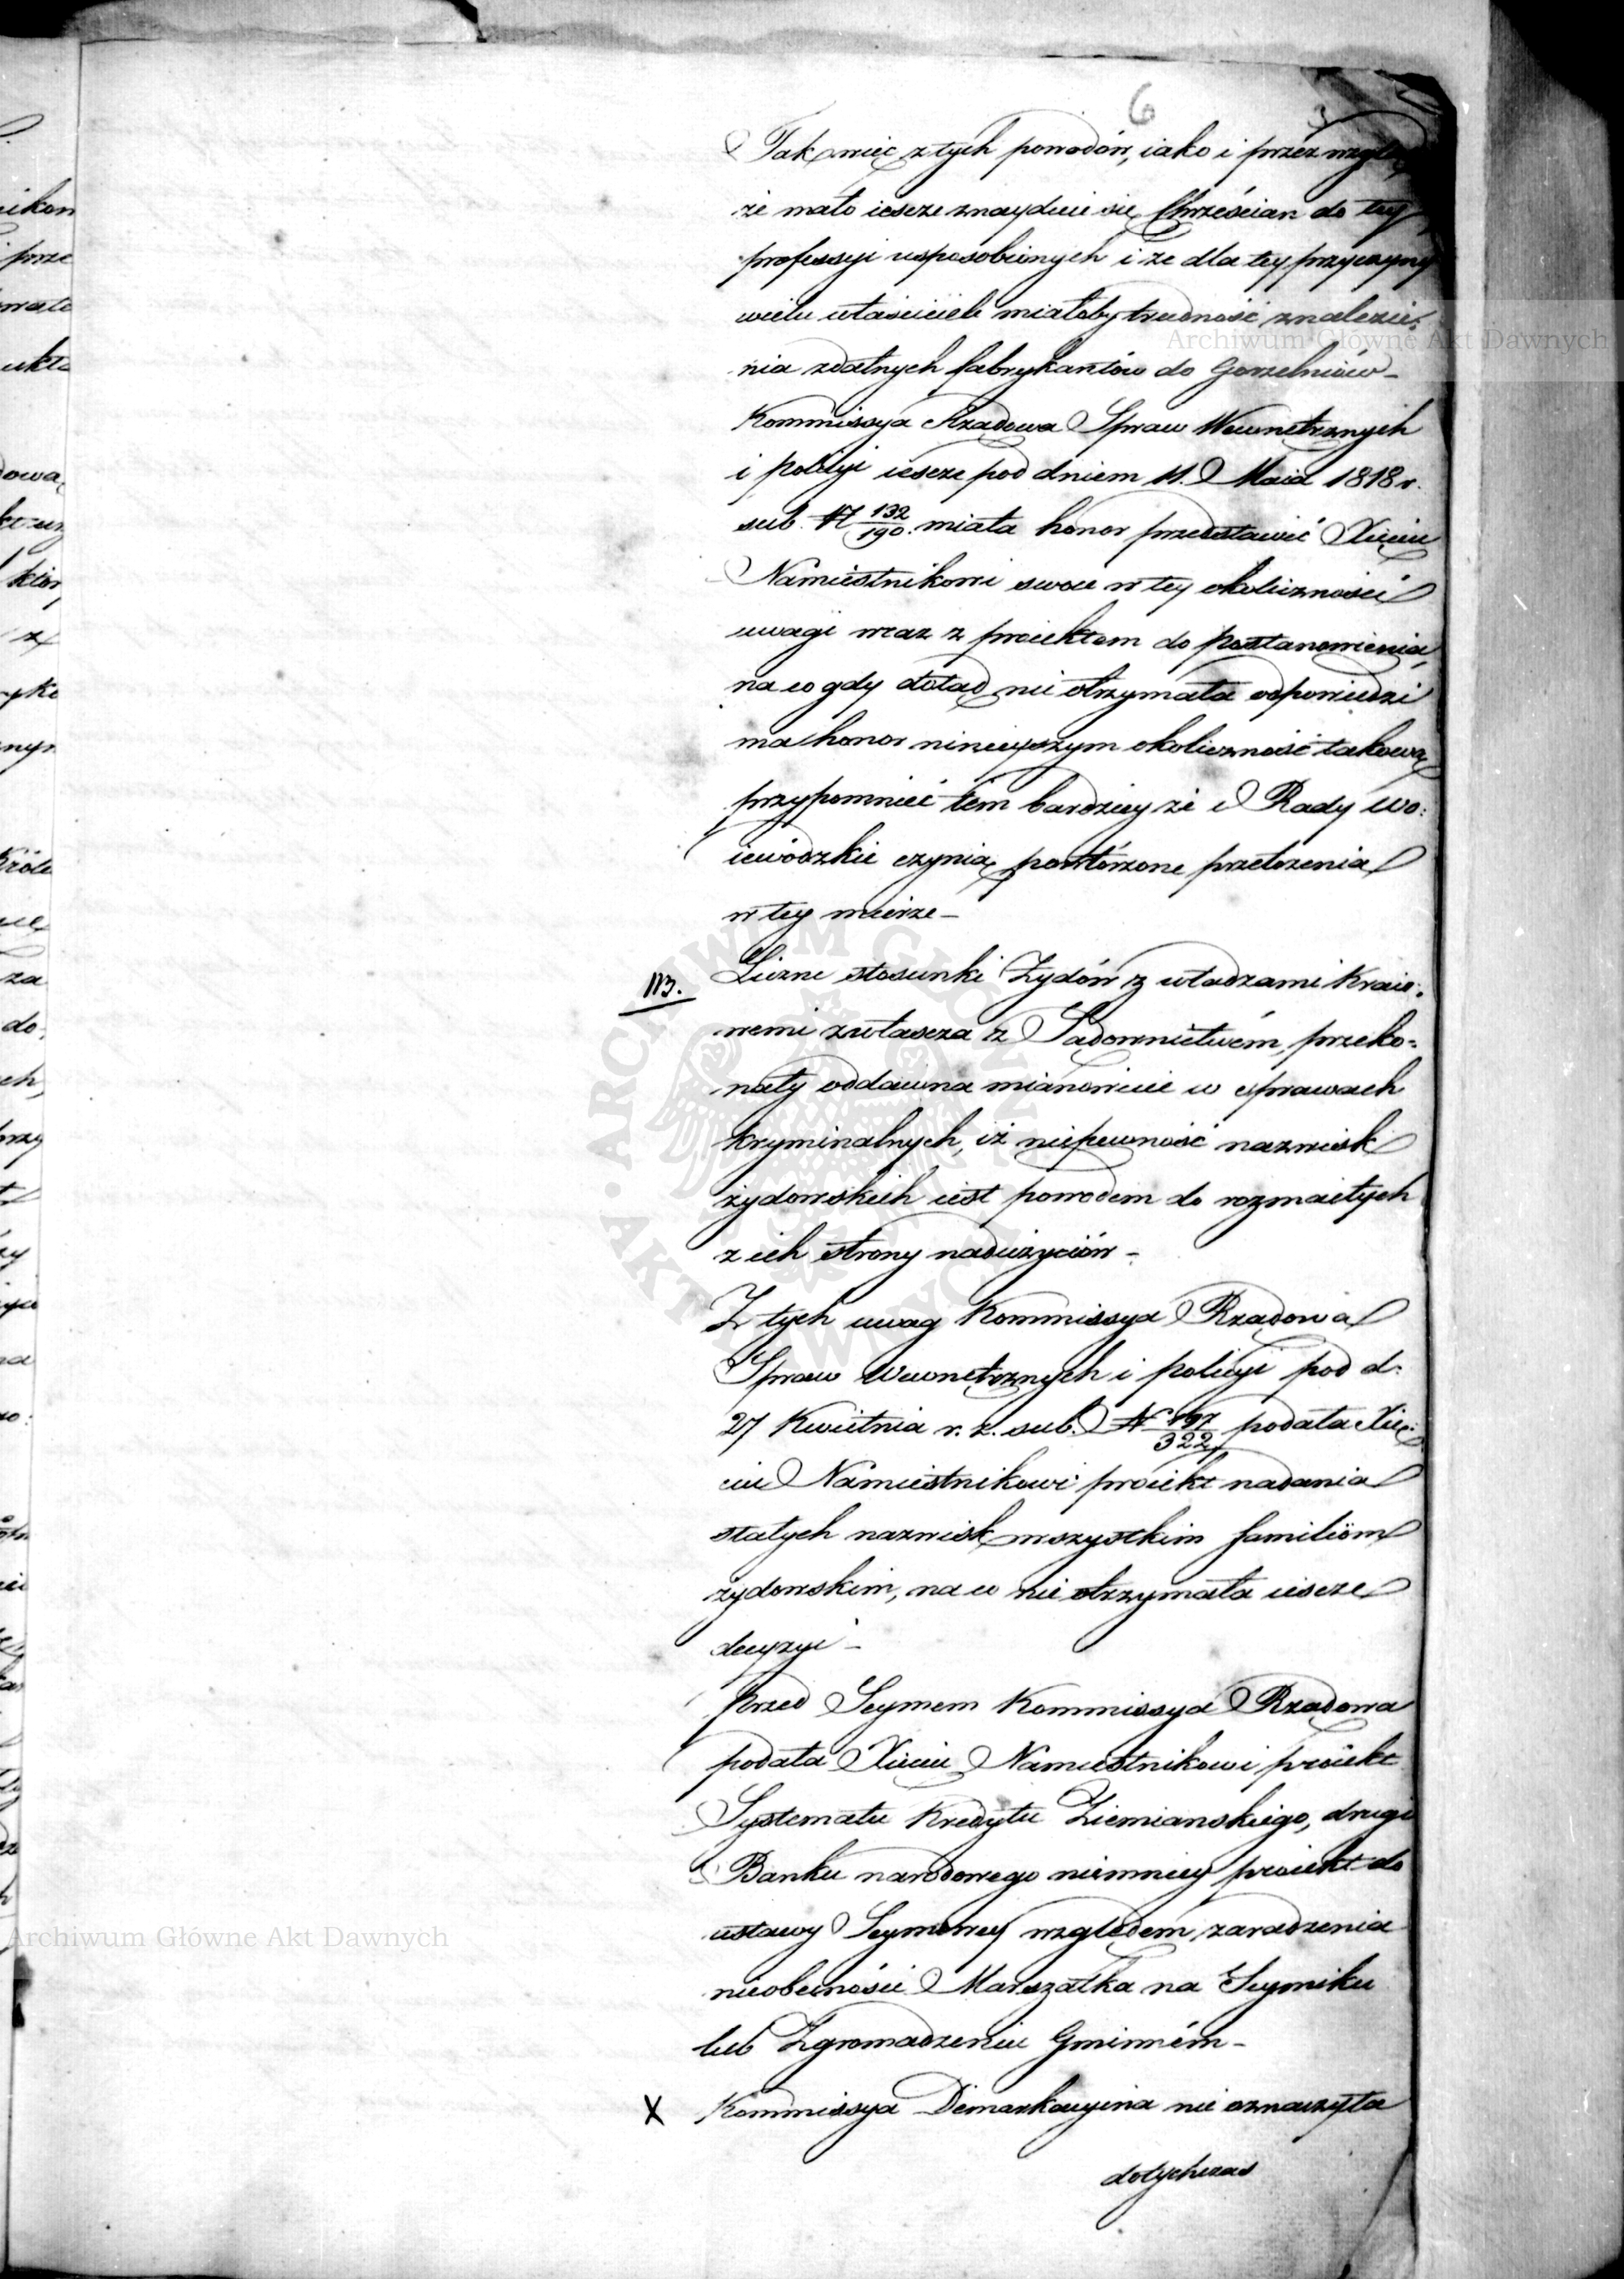 6
Tak więc z tych powodów, iako i przez wzglę
że mało ieszcze znayduie się Chrześcian do tey
professyi usposobionych i że dla tey przyczyny
wielu właścicieli miałoby trudność znalezie:
nia zdatnych fabrykantów do Gorzelniów –
Kommissya Rządowa Spraw Wewnętrznych
i policyi ieszcze pod dniem 11. Maia 1818 r.
sub. N 132/190. miała honor przedstawić Xięciu
Namiestnikowi swoie w tey okoliczności
uwagi wraz z proiektem do postanowienia,
na co gdy dotąd nie otrzymała odpowiedzi
ma honor ninieyszym okoliczność takową
przypomnieć tém bardziey że i Rady Wo:
iewódzkie czynią powtórzone przełożenia
w tey mierze –
Liczne stosunki Żydów z władzami Kraio:
wemi zwłaszcza z Sądownictwém, przeko:
nały oddawna mianowicie w sprawach
kryminalnych, iż niepewność nazwisk
żydowskich iest powodem do rozmaitych
z ich strony nadużyciów –
Z tych uwag Kommissya Rządowa
Spraw Wewnętrznych i policyi pod d:
27 Kwietnia r. z. sub. N 197/322 podała Xię:
ciu Namiestnikowi proiekt nadania
stałych nazwisk wszystkim familiöm
żydowskim, na co nie otrzymała ieszcze
decyzyi –
Przed Seymem Kommissya Rządowa
podała Xięciu Namiestnikowi proiekt
Systematu Kredytu Ziemianskiego, drugi
Banku narodowego niemniey proiekt do
ustawy Seymowey względem zaradzenia
nieobecności Marszałka na Seymiku
lub Zgromadzeniu Gminném –
X Kommissya Demarkacyina nie oznaczyła
dotychczas
Archiwum Główne Akt Dawnych
Archiwum Główne Akt Dawnych